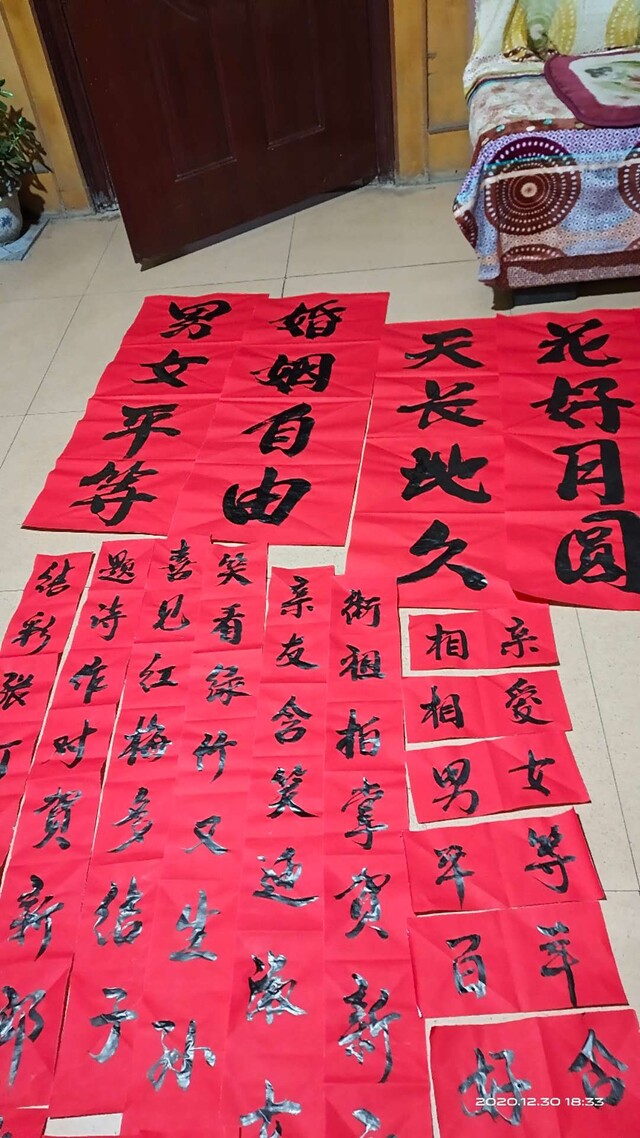 男女平等
婚姻自由
天长地久
花好月圆
结彩张
题诗作对賀新郎
喜见红梅多结子
笑看绿竹又生孙
亲友含笑迎淑
祖拍掌賀新
相亲
相愛
男女
平等
百年
好合
2020.12.30 18:33